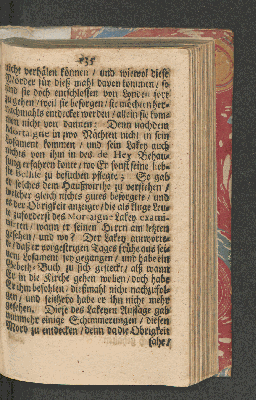 235
nicht verhälen können / und wiewol diese
Mörder für dieß mahl davon kommen / so
sind sie doch entschlossen von Londen fort
zu gehen / weil sie besorgen / sie möchten her-
nachmahls entdecket werden / allein sie kom-
men nicht von dannen: Denn nachdem
Mortaigne in zwo Nächten nicht in sein
Losament kommen / und sein Lakey auch
nichts von ihm in des de Hey Behau-
sung erfahren konte / wo Er sonst seine lieb-
ste zu besuchen pflegte; So gab
er solches dem Haußwirthe zu verstehen /
welcher gleich nichts gutes besorgete / und
es der Obrigkeit anzeigte / die als kluge Leu-
te zuforderst des Mortaigne Lakey exami-
nirten / wann er seinen Herrn am letzten
gesehen / und wo? Der Lakey antworte-
te / daß er vorgestrigen Tages frühe aus sei-
nem Losament sey gegangen / und habe ein
Gebeth-Buch zu sich gesteckt / als wann
Er in die Kirche gehen wolte / doch habe
Er ihm befohlen / dießmahl nicht nachzufol-
gen / und seithero habe er ihn nicht mehr
gesehen. Diese des Lakeyen Aussage gab
nunmehr einige Schimmerungen / diesen
Mord zu entdecken / denn da die Obrigkeit
sahe /